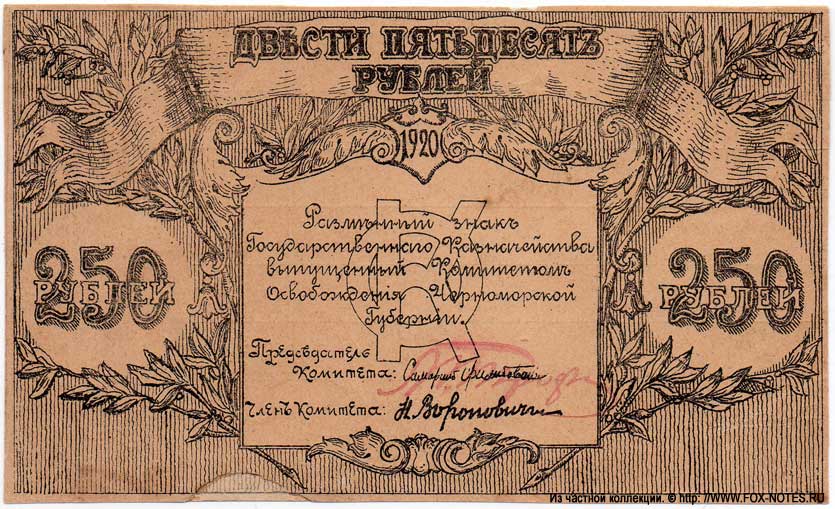 ДВѢСТИ ПЯТЬДЕСЯТЪ
РУБЛЕЙ
1920
Размѣнный знакъ
Государственнаго Казначейства
выпущенный Комитетомъ
Освобожденія Черноморской
Губерніи.
250
РУБЛЕЙ
250
РУБЛЕЙ
Предсѣдатель
Комитета:
Членъ Комитета: Н. Вороновичъ
Из частной коллекции. © http://WWW.FOX-NOTES.RU